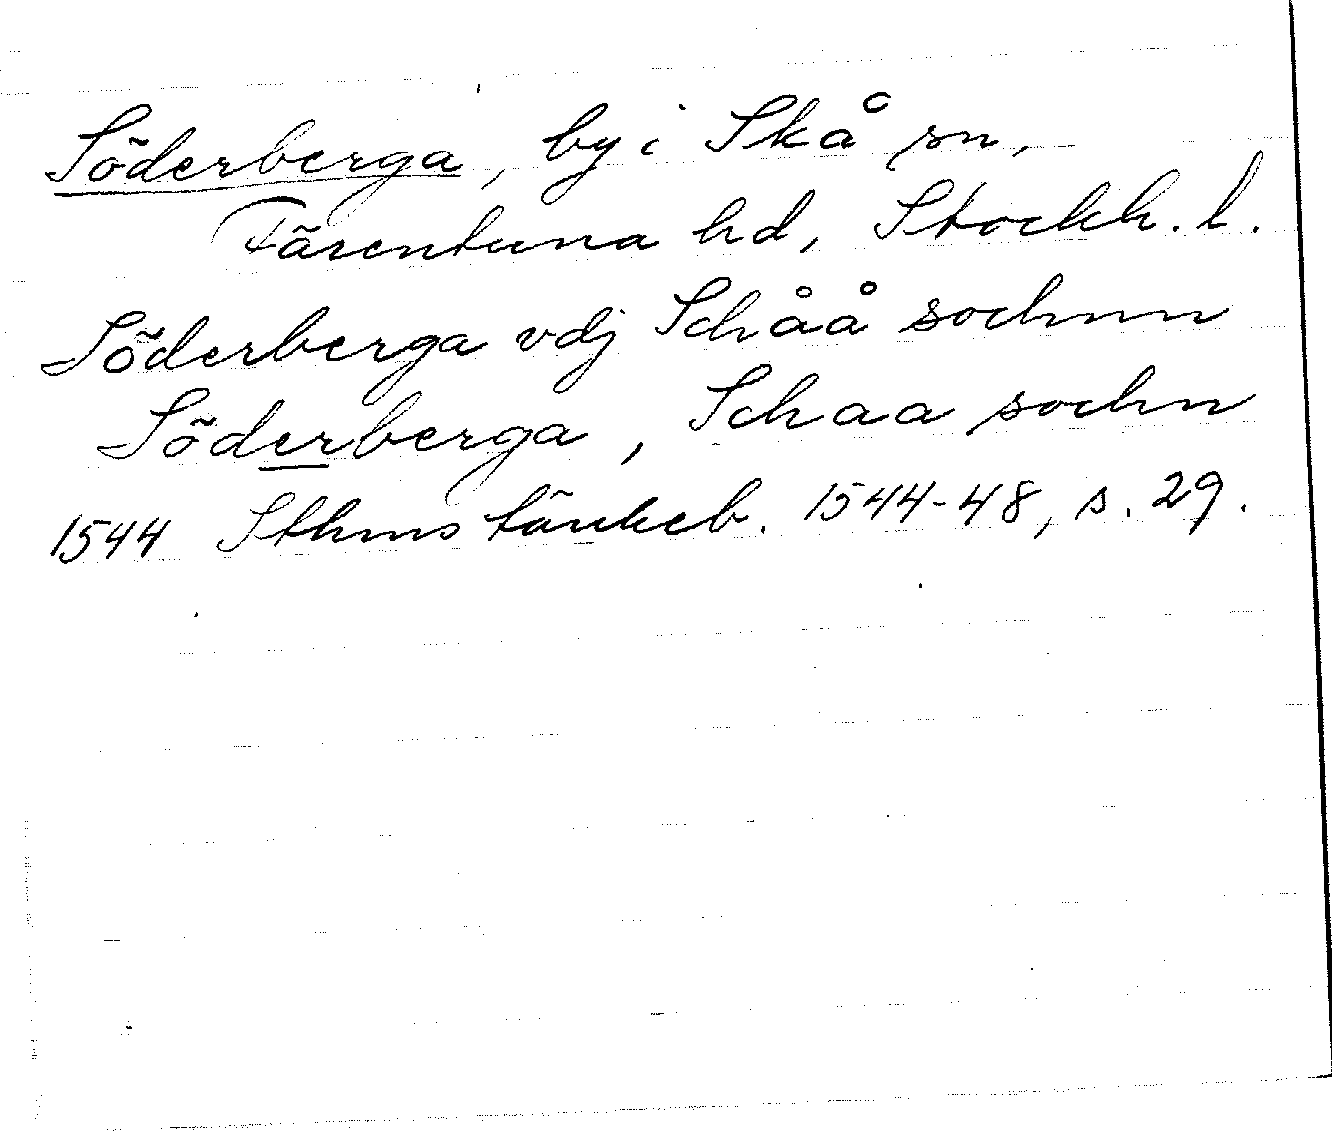 Söderberga, by i Skå sn,
Färentuna hd, Stockh. l.
Söderberga vdj Schåå sochnn
Söderberga, Schaa sochn
1544 Sthms tänkeb. 1544-48, s. 29.